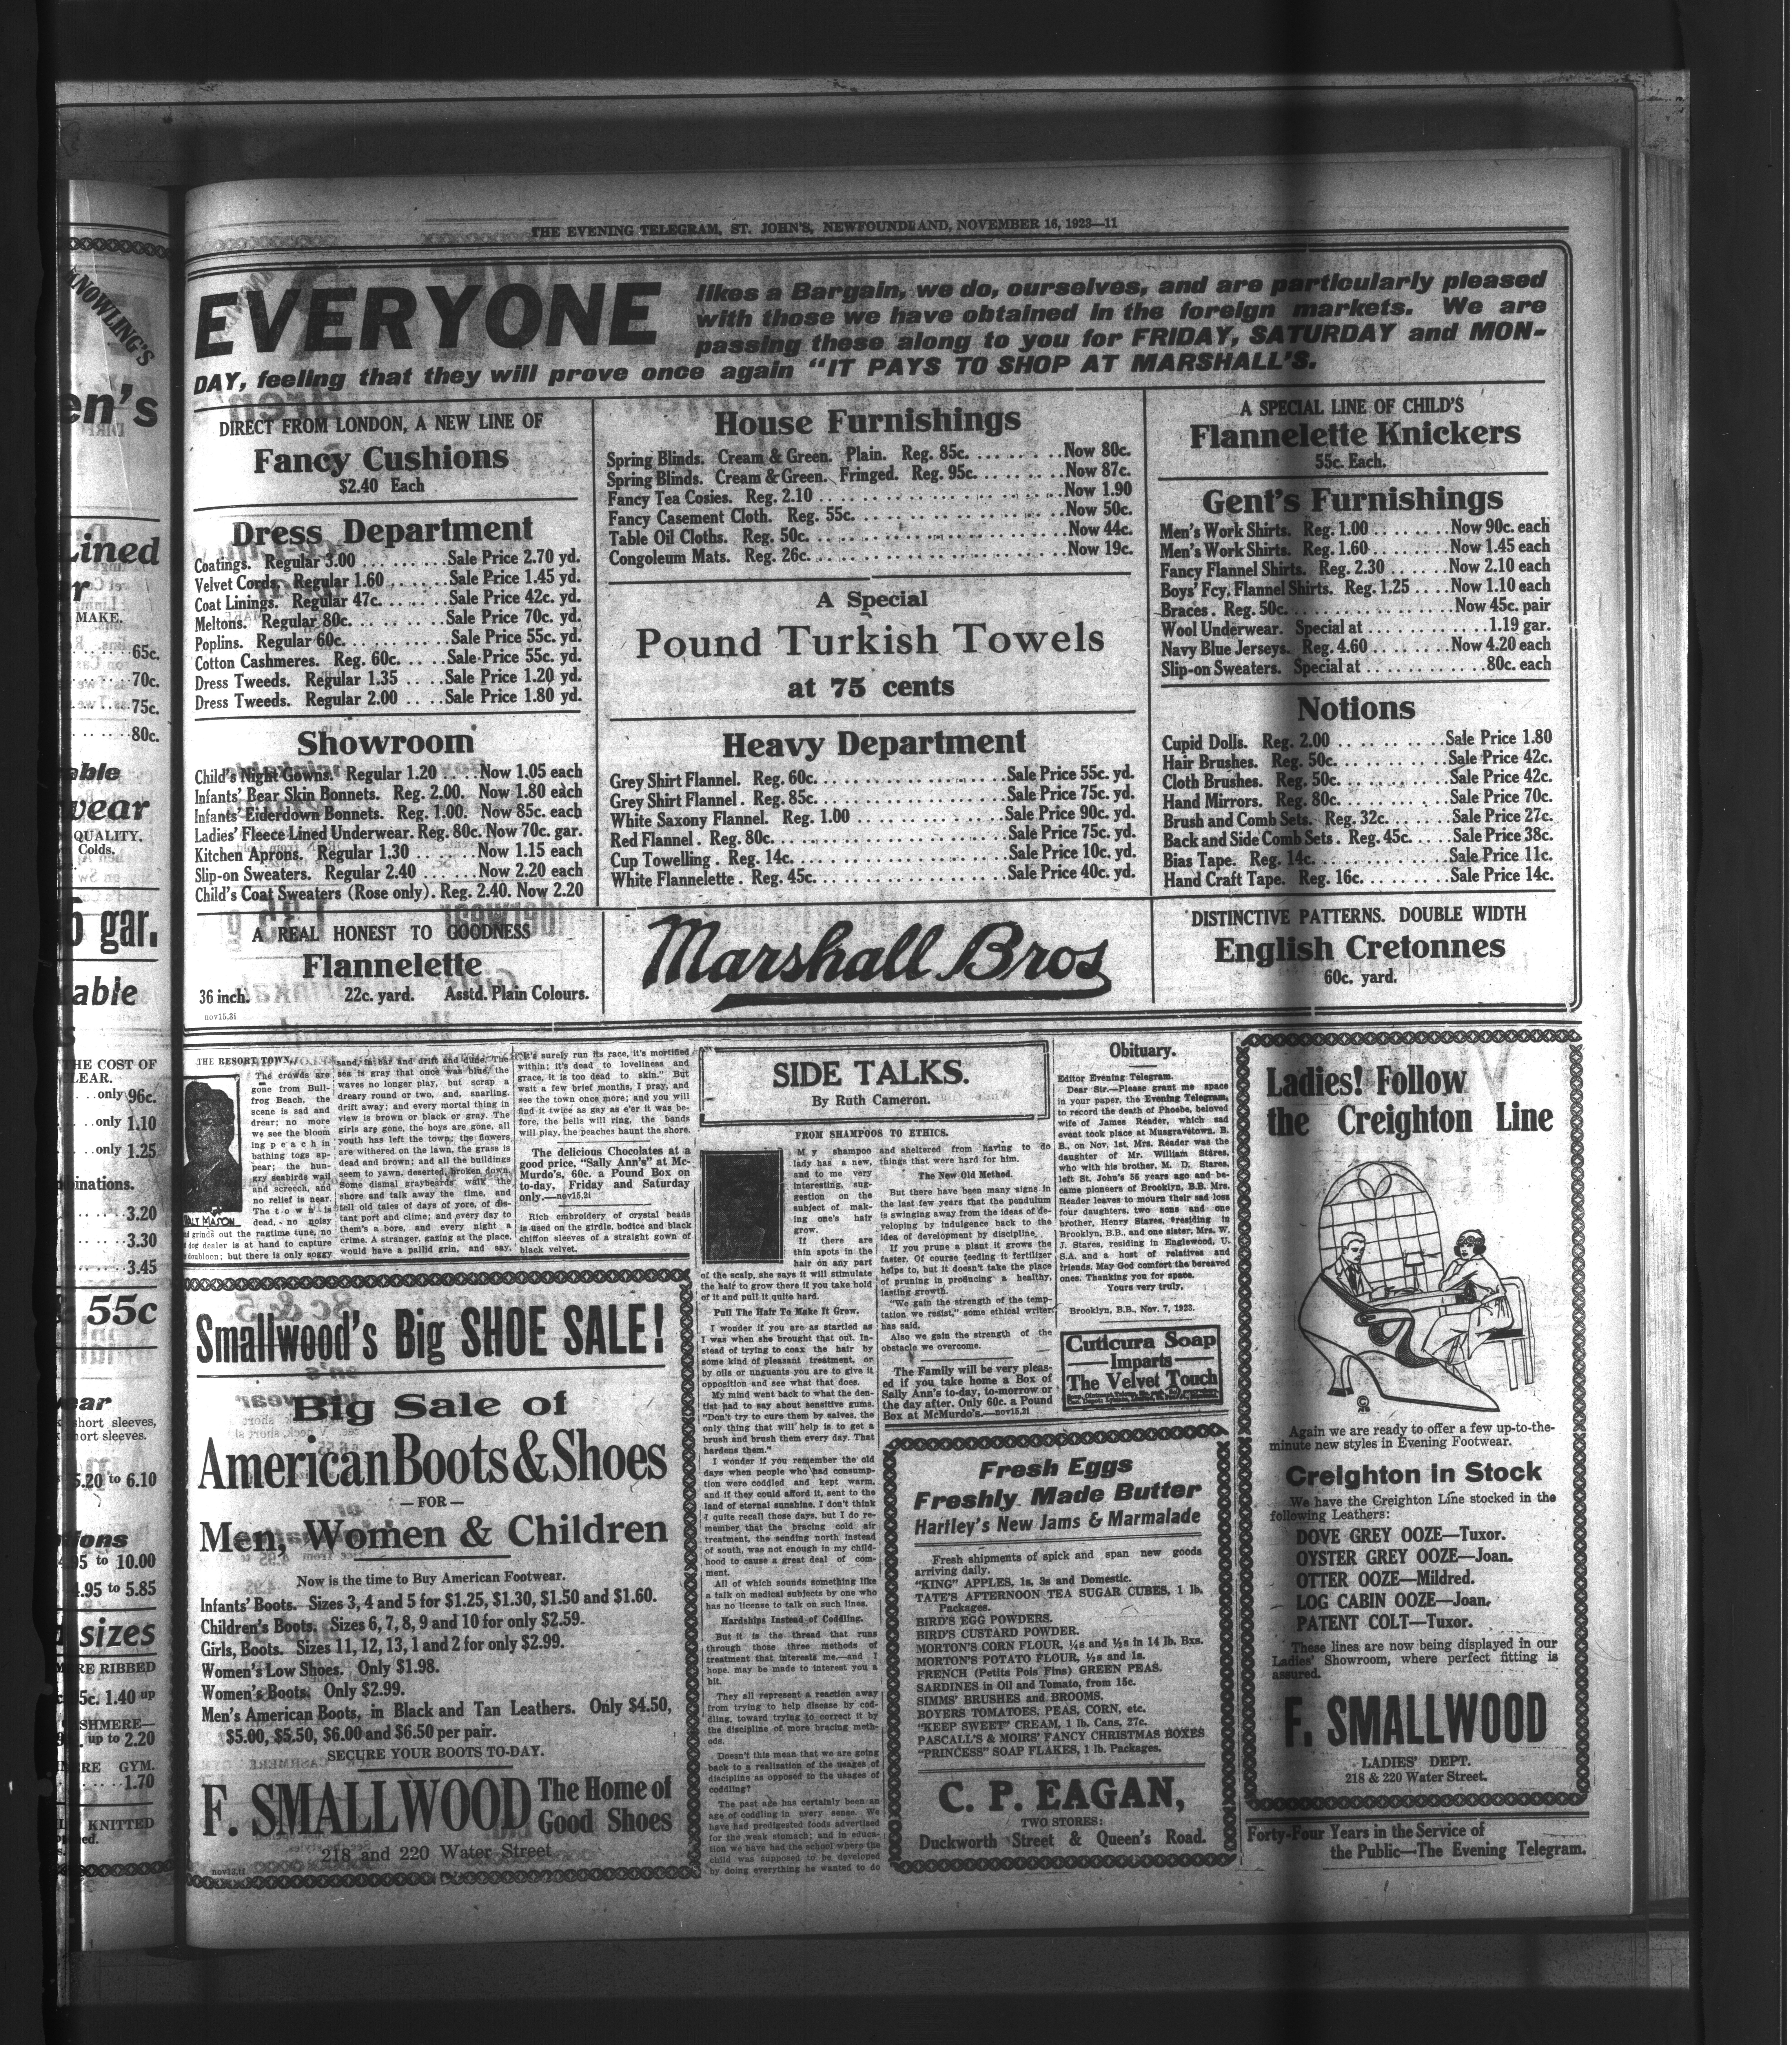 THE EVENING TELEGRAM, ST. JOHN'S, NEWFOUNDLAND, NOVEMBER 16, 1923—11
EVERYONE
likes a Bargain, we do, ourselves, and are particularly pleased
with those we have obtained in the foreign markets. We are
passing these along to you for FRIDAY, SATURDAY and MON-
DAY, feeling that they will prove once again "IT PAYS TO SHOP AT MARSHALL'S.
DIRECT FROM LONDON, A NEW LINE OF
Fancy Cushions
$2.40 Each
Dress Department
Coatings. Regular 3.00 . . . . . . . . . Sale Price 2.70 yd.
Velvet Cords. Regular 1.60 . . . . . . Sale Price 1.45 yd.
Coat Linings. Regular 47c. . . . . . . Sale Price 42c. yd.
Meltons. Regular 80c. . . . . . . . . Sale Price 70c. yd.
Poplins. Regular 60c. . . . . . . . . . Sale Price 55c. yd.
Cotton Cashmeres. Reg. 60c. . . . . Sale Price 55c. yd.
Dress Tweeds. Regular 1.35 . . . . Sale Price 1.20 yd.
Dress Tweeds. Regular 2.00 . . . . Sale Price 1.80 yd.
Showroom
Child's Night Gowns. Regular 1.20 . . . . Now 1.05 each
Infants' Bear Skin Bonnets. Reg. 2.00. Now 1.80 each
Infants' Eiderdown Bonnets. Reg. 1.00. Now 85c. each
Ladies' Fleece Lined Underwear. Reg. 80c. Now 70c. gar.
Kitchen Aprons. Regular 1.30 . . . . . . Now 1.15 each
Slip-on Sweaters. Regular 2.40 . . . . . . Now 2.20 each
Child's Coat Sweaters (Rose only). Reg. 2.40. Now 2.20
A REAL HONEST TO GOODNESS
Flannelette
36 inch. 22c. yard. Asstd. Plain Colours.
nov15,3i
House Furnishings
Spring Blinds. Cream & Green. Plain. Reg. 85c. . . . . . . . . Now 80c.
Spring Blinds. Cream & Green. Fringed. Reg. 95c. . . . . . . Now 87c.
Fancy Tea Cosies. Reg. 2.10 . . . . . . . . . . . . . . . . Now 1.90
Fancy Casement Cloth. Reg. 55c. . . . . . . . . . . . . . . Now 50c.
Table Oil Cloths. Reg. 50c. . . . . . . . . . . . . . . . . Now 44c.
Congoleum Mats. Reg. 26c. . . . . . . . . . . . . . . . . Now 19c.
A Special
Pound Turkish Towels
at 75 cents
Heavy Department
Grey Shirt Flannel. Reg. 60c. . . . . . . . . . . . . Sale Price 55c. yd.
Grey Shirt Flannel. Reg. 85c. . . . . . . . . . . . . Sale Price 75c. yd.
White Saxony Flannel. Reg. 1.00 . . . . . . . . . . Sale Price 90c. yd.
Red Flannel. Reg. 80c. . . . . . . . . . . . . . . . Sale Price 75c. yd.
Cup Towelling. Reg. 14c. . . . . . . . . . . . . . . Sale Price 10c. yd.
White Flannelette. Reg. 45c. . . . . . . . . . . . . Sale Price 40c. yd.
Marshall Bros
A SPECIAL LINE OF CHILD'S
Flannelette Knickers
55c. Each.
Gent's Furnishings
Men's Work Shirts. Reg. 1.00 . . . . . . . Now 90c. each
Men's Work Shirts. Reg. 1.60 . . . . . . . Now 1.45 each
Fancy Flannel Shirts. Reg. 2.30 . . . . . . Now 2.10 each
Boys' Fcy. Flannel Shirts. Reg. 1.25 . . . . Now 1.10 each
Braces. Reg. 50c. . . . . . . . . . . . . . Now 45c. pair
Wool Underwear. Special at . . . . . . . . . . . 1.19 gar.
Navy Blue Jerseys. Reg. 4.60 . . . . . . . Now 4.20 each
Slip-on Sweaters. Special at . . . . . . . . . . 80c. each
Notions
Cupid Dolls. Reg. 2.00 . . . . . . . . . Sale Price 1.80
Hair Brushes. Reg. 50c. . . . . . . . . Sale Price 42c.
Cloth Brushes. Reg. 50c. . . . . . . . . Sale Price 42c.
Hand Mirrors. Reg. 80c. . . . . . . . . Sale Price 70c.
Brush and Comb Sets. Reg. 32c. . . . . . Sale Price 27c.
Back and Side Comb Sets. Reg. 45c. . . . Sale Price 38c.
Bias Tape. Reg. 14c. . . . . . . . . . . Sale Price 11c.
Hand Craft Tape. Reg. 16c. . . . . . . . Sale Price 14c.
DISTINCTIVE PATTERNS. DOUBLE WIDTH
English Cretonnes
60c. yard.
THE RESORT TOWN.
The crowds are
gone from Bull-
frog Beach, the
scene is sad and
drear; no more
we see the bloom
ing peach in
bathing togs ap-
pear; the hun-
gry seabirds wail
and screech, and
no relief is near.
The town is
dead, no noisy
grinds out the ragtime tune, no
dog dealer is at hand to capture
doubloon; but there is only soggy
WALT MASON
sand, in bar and drift and dune. The
sea is gray that once was blue, the
waves no longer play, but scrap a
dreary round or two, and, snarling,
drift away; and every mortal thing in
view is brown or black or gray. The
girls are gone, the boys are gone, all
youth has left the town; the flowers
are withered on the lawn, the grass is
dead and brown; and all the buildings
seem to yawn, deserted, broken down.
Some dismal graybeards walk the
shore and talk away the time, and
tell old tales of days of yore, of dis-
tant port and clime; and every day to
them's a bore, and every night a
crime. A stranger, gazing at the place,
would have a pallid grin, and say,
"It's surely run its race, it's mortified
within; it's dead to loveliness and
grace, it is too dead to skin." But
wait a few brief months, I pray, and
see the town once more; and you will
find it twice as gay as e'er it was be-
fore, the bells will ring, the bands
will play, the peaches haunt the shore.
The delicious Chocolates at a
good price, "Sally Ann's" at Mc-
Murdo's, 60c. a Pound Box on
to-day, Friday and Saturday
only.—nov15,2i
Rich embroidery of crystal beads
is used on the girdle, bodice and black
chiffon sleeves of a straight gown of
black velvet.
Smallwood's Big SHOE SALE!
Big Sale of
American Boots & Shoes
—FOR—
Men, Women & Children
Now is the time to Buy American Footwear.
Infants' Boots. Sizes 3, 4 and 5 for $1.25, $1.30, $1.50 and $1.60.
Children's Boots. Sizes 6, 7, 8, 9 and 10 for only $2.59.
Girls, Boots. Sizes 11, 12, 13, 1 and 2 for only $2.99.
Women's Low Shoes. Only $1.98.
Women's Boots. Only $2.99.
Men's American Boots, in Black and Tan Leathers. Only $4.50,
$5.00, $5.50, $6.00 and $6.50 per pair.
SECURE YOUR BOOTS TO-DAY.
F. SMALLWOOD The Home of
Good Shoes
218 and 220 Water Street
nov13,tf
SIDE TALKS.
By Ruth Cameron.
FROM SHAMPOOS TO ETHICS.
My shampoo
lady has a new,
and to me very
interesting, sug-
gestion on the
subject of mak-
ing one's hair
grow.
If there are
thin spots in the
hair on any part
of the scalp, she says it will stimulate
the hair to grow there if you take hold
of it and pull it quite hard.
Pull The Hair To Make It Grow.
I wonder if you are as startled as
I was when she brought that out. In-
stead of trying to coax the hair by
some kind of pleasant treatment, or
by oils or unguents you are to give it
opposition and see what that does.
My mind went back to what the den-
tist had to say about sensitive gums.
"Don't try to cure them by salves, the
only thing that will help is to get a
brush and brush them every day. That
hardens them."
I wonder if you remember the old
days when people who had consump-
tion were coddled and kept warm,
and if they could afford it, sent to the
land of eternal sunshine. I don't think
I quite recall those days, but I do re-
member that the bracing cold air
treatment, the sending north instead
of south, was not enough in my child-
hood to cause a great deal of com-
ment.
All of which sounds something like
a talk on medical subjects by one who
has no license to talk on such lines.
Hardships Instead of Coddling.
But it is the thread that runs
through those three methods of
treatment that interests me,—and I
hope, may be made to interest you a
bit.
They all represent a reaction away
from trying to help disease by cod-
dling, toward trying to correct it by
the discipline of more bracing meth-
ods.
Doesn't this mean that we are going
back to a realization of the usages of
discipline as opposed to the usages of
coddling?
The past age has certainly been an
age of coddling in every sense. We
have had predigested foods advertised
for the weak stomach; and in educa-
tion we have had the school where the
child was supposed to be developed
by doing everything he wanted to do
and sheltered from having to do
things that were hard for him.
The New Old Method.
But there have been many signs in
the last few years that the pendulum
is swinging away from the ideas of de-
veloping by indulgence back to the
idea of development by discipline.
If you prune a plant it grows the
faster. Of course feeding it fertilizer
helps to, but it doesn't take the place
of pruning in producing a healthy,
lasting growth.
"We gain the strength of the temp-
tation we resist," some ethical writer
has said.
Also we gain the strength of the
obstacle we overcome.
The Family will be very pleas-
ed if you take home a Box of
Sally Ann's to-day, to-morrow or
the day after. Only 60c. a Pound
Box at McMurdo's.—nov15,2i
Obituary.
Editor Evening Telegram.
Dear Sir,—Please grant me space
in your paper, the Evening Telegram,
to record the death of Phoebe, beloved
wife of James Reader, which sad
event took place at Musgravetown, B.
B., on Nov. 1st. Mrs. Reader was the
daughter of Mr. William Stares,
who with his brother, M. D. Stares,
left St. John's 55 years ago and be-
came pioneers of Brooklyn, B.B. Mrs.
Reader leaves to mourn their sad loss
four daughters, two sons and one
brother, Henry Stares, residing in
Brooklyn, B.B., and one sister, Mrs. W.
J. Stares, residing in Englewood, U.
S.A. and a host of relatives and
friends. May God comfort the bereaved
ones. Thanking you for space.
Yours very truly,
Brooklyn, B.B., Nov. 7, 1923.
Cuticura Soap
Imparts
The Velvet Touch
Fresh Eggs
Freshly Made Butter
Hartley's New Jams & Marmalade
Fresh shipments of spick and span new goods
arriving daily.
"KING" APPLES, 1s, 3s and Domestic.
TATE'S AFTERNOON TEA SUGAR CUBES, 1 lb.
Packages.
BIRD'S EGG POWDERS.
BIRD'S CUSTARD POWDER.
MORTON'S CORN FLOUR, ¼s and ½s in 14 lb. Bxs.
MORTON'S POTATO FLOUR, ½s and 1s.
FRENCH (Petits Pois Fins) GREEN PEAS.
SARDINES in Oil and Tomato, from 15c.
SIMMS' BRUSHES and BROOMS.
BOYERS TOMATOES, PEAS, CORN, etc.
"KEEP SWEET" CREAM, 1 lb. Cans, 27c.
PASCALL'S & MOIRS' FANCY CHRISTMAS BOXES
"PRINCESS" SOAP FLAKES, 1 lb. Packages.
C. P. EAGAN,
TWO STORES:
Duckworth Street & Queen's Road.
Ladies! Follow
the Creighton Line
Again we are ready to offer a few up-to-the-
minute new styles in Evening Footwear.
Creighton in Stock
We have the Creighton Line stocked in the
following Leathers:
DOVE GREY OOZE—Tuxor.
OYSTER GREY OOZE—Joan.
OTTER OOZE—Mildred.
LOG CABIN OOZE—Joan.
PATENT COLT—Tuxor.
These lines are now being displayed in our
Ladies' Showroom, where perfect fitting is
assured.
F. SMALLWOOD
LADIES' DEPT.
218 & 220 Water Street.
Forty-Four Years in the Service of
the Public—The Evening Telegram.
KNOWLING'S
en's
Lined
MAKE.
65c.
70c.
75c.
80c.
able
wear
QUALITY.
Colds.
gar.
able
THE COST OF
only 96c.
only 1.10
only 1.25
3.20
3.30
3.45
55c
short sleeves,
short sleeves.
5.20 to 6.10
to 10.00
to 5.85
sizes
RIBBED
1.40 up
up to 2.20
GYM.
1.70
KNITTED